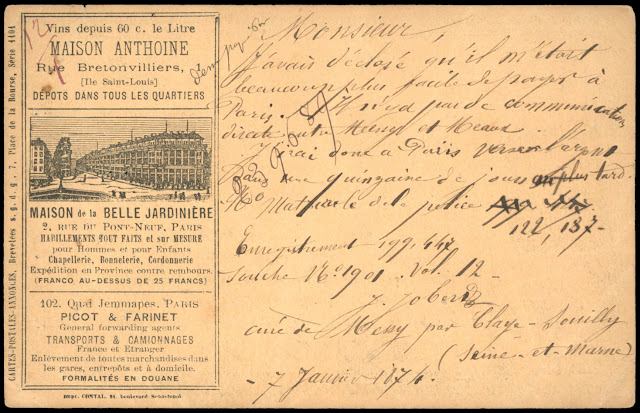 CARTES-POSTALES-ANNONCES, Brevetées s. g. d. g., 7, Place de la Bourse, Série 1101
Vins depuis 60 c. le Litre
MAISON ANTHOINE
Rue Bretonvilliers,
[Ile Saint-Louis]
DÉPOTS DANS TOUS LES QUARTIERS
MAISON de la BELLE JARDINIÈRE
2, RUE DU PONT-NEUF, PARIS
HABILLEMENTS TOUT FAITS et sur MESURE
pour Hommes et pour Enfants
Chapellerie, Bonneterie, Cordonnerie
Expédition en Province contre rembours.
(FRANCO AU-DESSUS DE 25 FRANCS)
102, Quai Jemmapes, PARIS
PICOT & FARINET
General forwarding agents
TRANSPORTS & CAMIONNAGES
France et Etranger
Enlèvement de toutes marchandises dans
les gares, entrepôts et à domicile.
FORMALITÉS EN DOUANE
Impr. CONTAL, boulevard Sébastopol
Monsieur
J'avais déclaré qu'il m'était
beaucoup plus facile de payer à
Paris. Il n'y a pas de communication
directe entre Messy et Meaux.
J'irai donc à Paris
Dans une quinzaine de jours au plus tard.
No Matricule de la police
122,137-
Enregistrement - 199,447
Souche No 1901 - Vol. 12 -
J. Jobert
curé de Messy par Claye-Souilly
(Seine-et-Marne)
- 7 Janvier 1874.